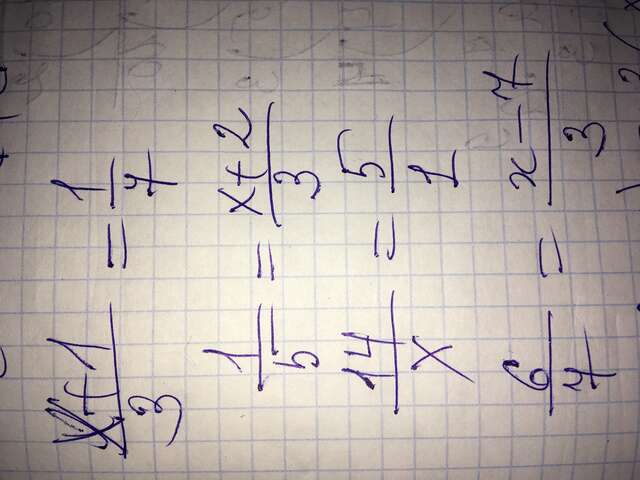 x+1/3 = 1/7
1/5 = x+2/3
14/x = 5/1
6/7 = x-7/3